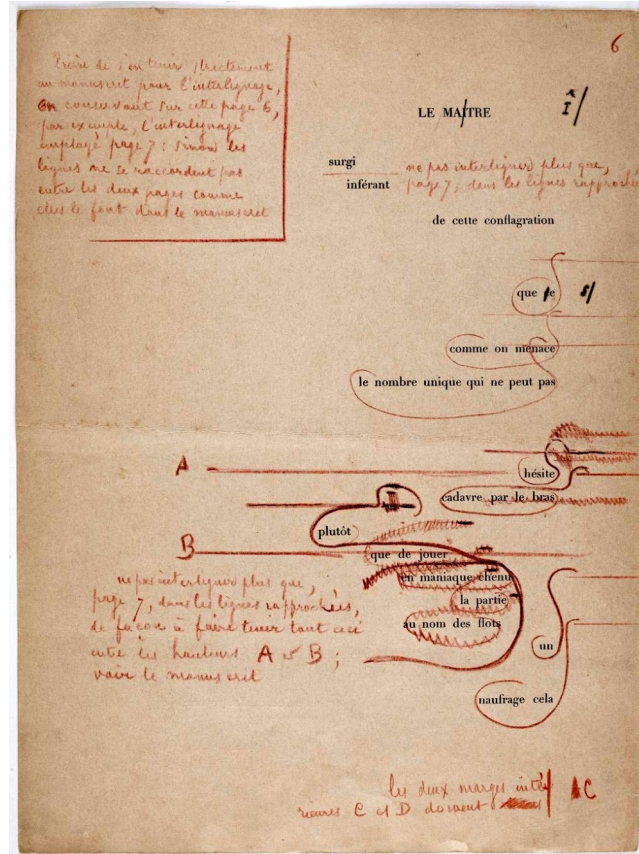 6
Prière de s'en tenir strictement
au manuscrit pour l'interlignage,
en conservant sur cette page 6,
par exemple, l'interlignage
employé page 7 : sinon les
lignes ne se raccordent pas
entre les deux pages comme
elles le font dans le manuscrit
LE MAITRE
Î/
surgi
ne pas interligner plus que,
inférant
page 7, dans les lignes rapproché
de cette conflagration
que le
s/
comme on menace
le nombre unique qui ne peut pas
A
hésite
cadavre par le bras
plutôt
B
que de jouer
en maniaque chenu
la partie
au nom des flots
ne pas interligner plus que,
page 7, dans les lignes rapprochées,
de façon à faire tenir tout ceci
entre les hauteurs A et B ;
voir le manuscrit
un
naufrage cela
les deux marges inté
AC
rieures C et D doivent